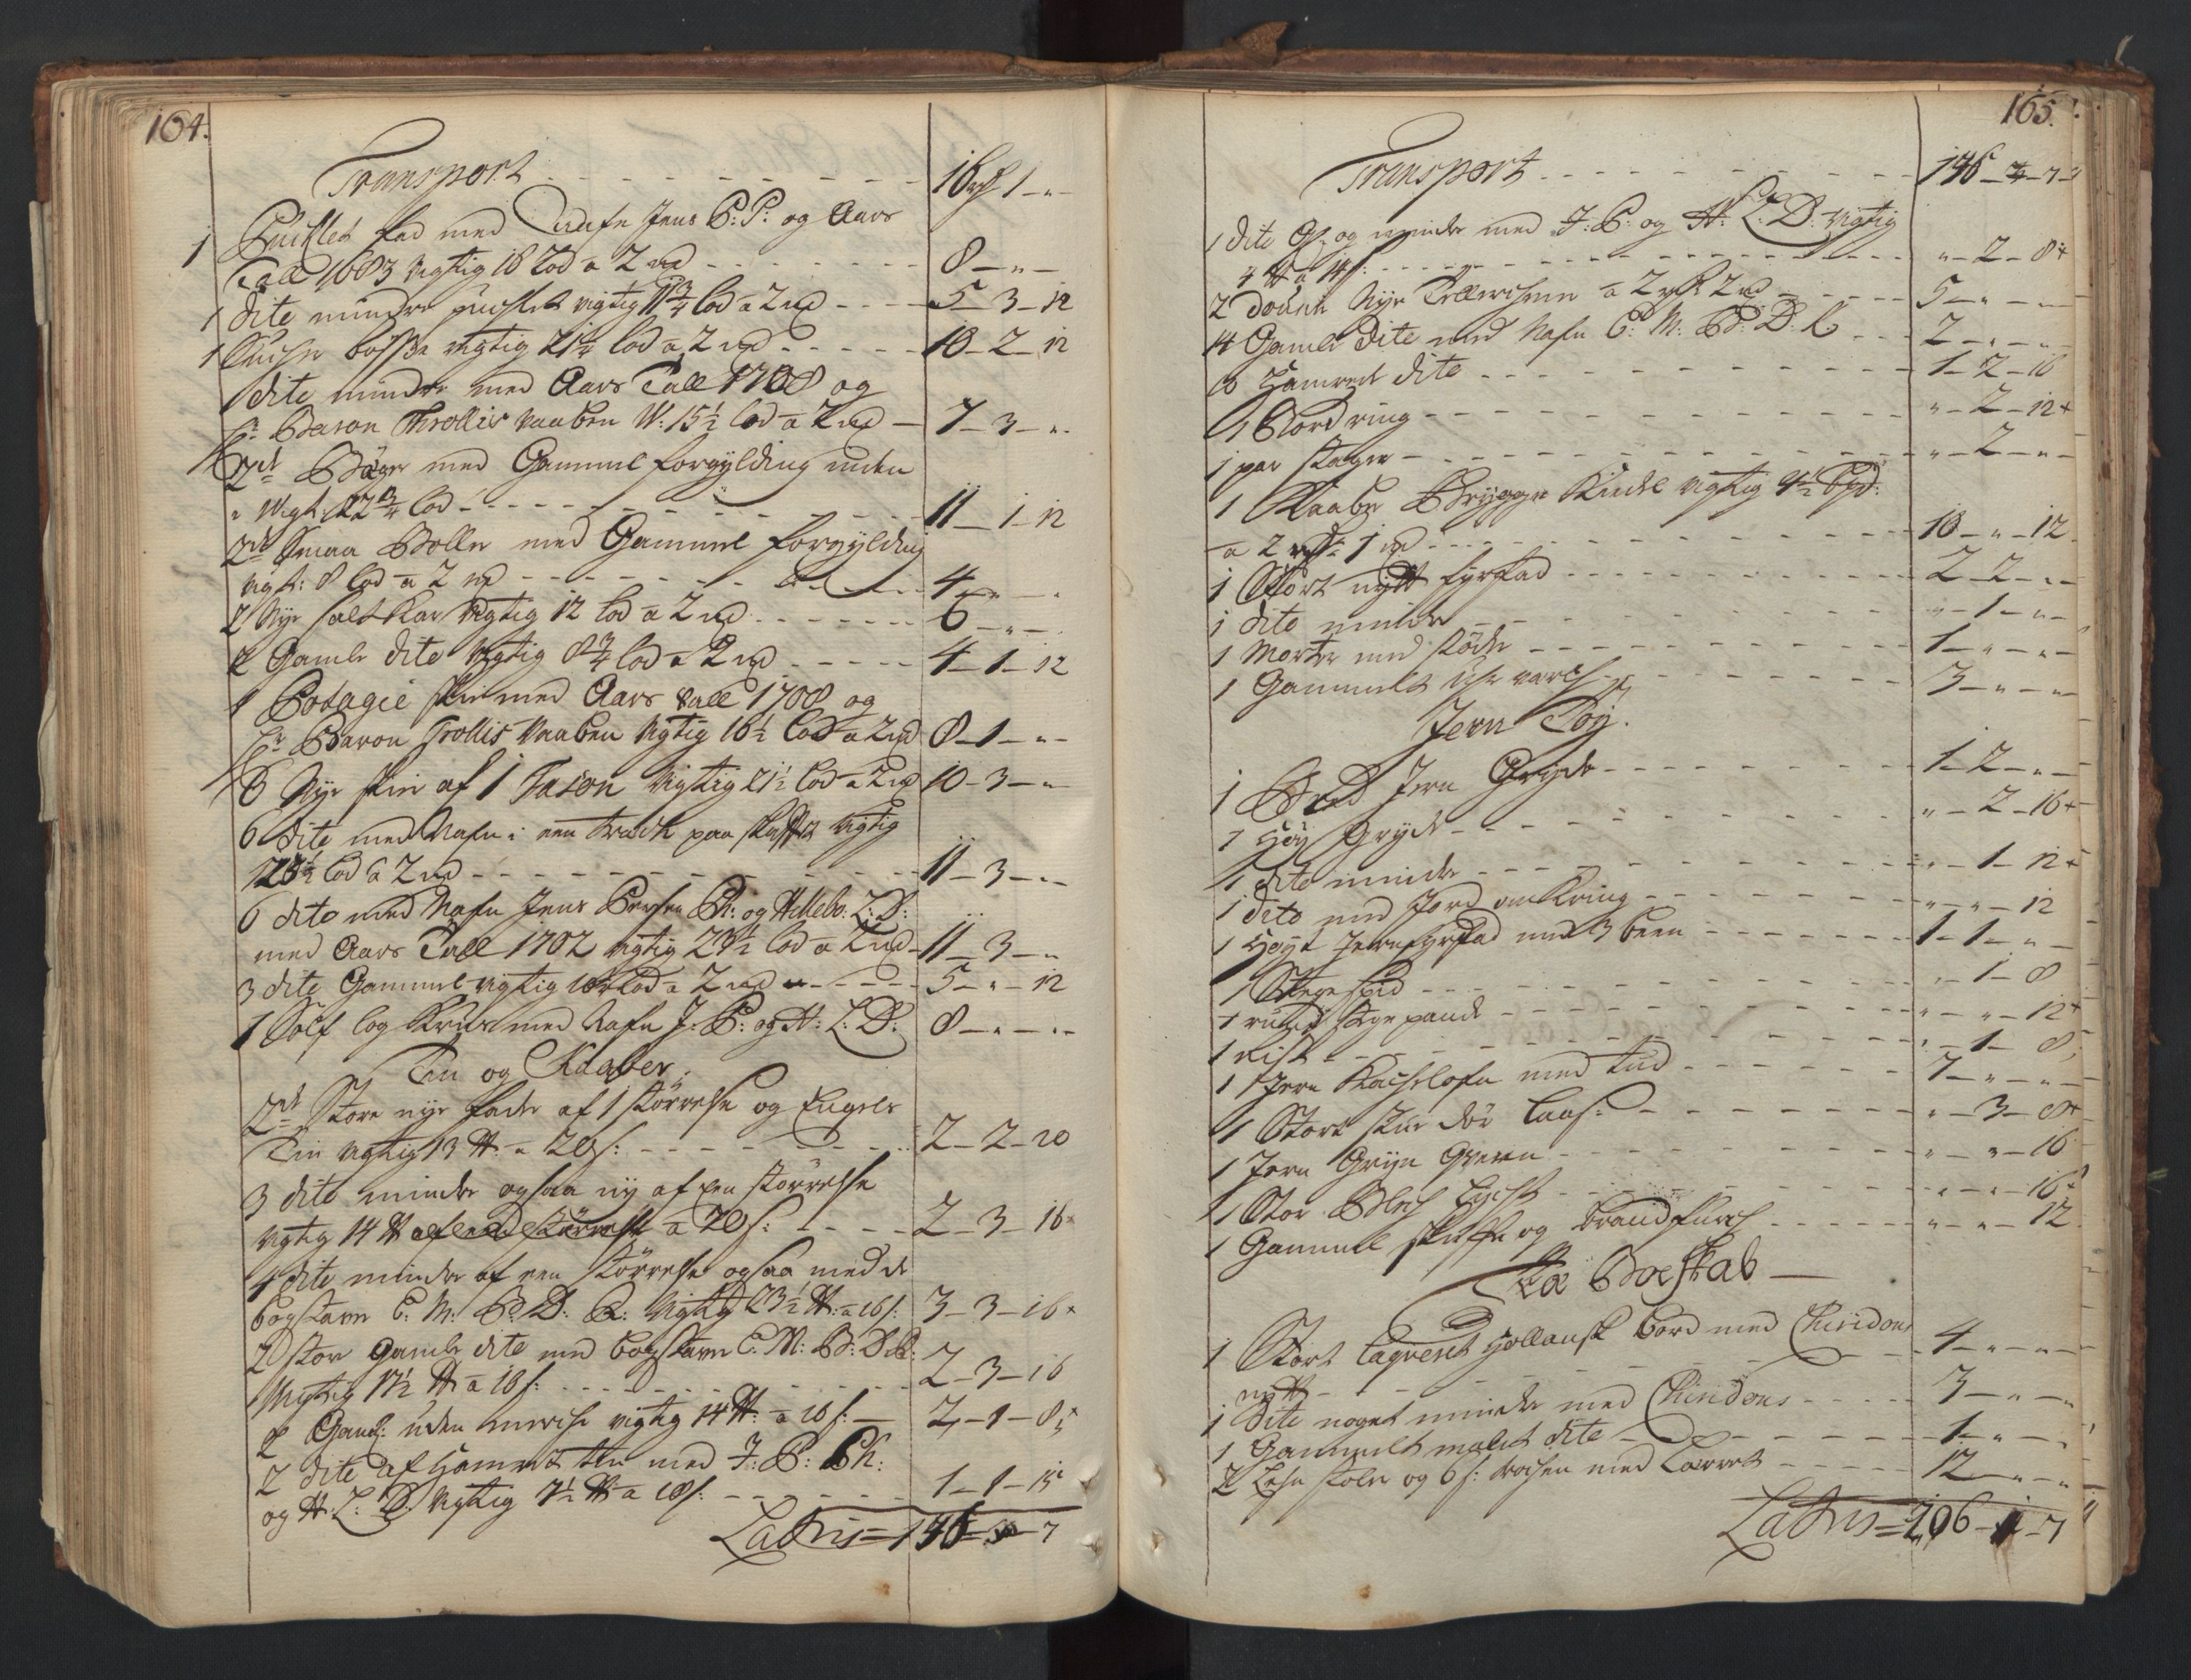 164.
Transport - - - 16 rd 1 - „ -
1 Pucklet fad med Nafn Jens P: P: og Aars
Tall 1683 vigtig 16 lod a 2 md - - - 8 - „ -
1 dito mindre pucklet vigtig 11¾ lod a 2 md - - - 5 - 3 - 12
1 Suker bøsse vigtig 21¼ lod a 2 md - - - 10 - 2 - 12
1 dito mindre med Aars Tall 1708 og
Hr: Baron Throllis vaaben W: 15½ lod a 2 md - 7 - 3 - „
2de Bæger med Gammel forgylding inden
Wigt: 22¾ lod - - - 11 - 1 - 12
2de Smaa Boller med Gammel forgylding
vigt: 8 lod a 2 md - - - 4 - „ -
2 Nye saltkar vigtig 12 lod a 2 md - - - 6 - „ -
2 Gamle dito vigtig 8¾ lod a 2 md - - - 4 - 1 - 12
1 Potagie skee med Aars tall 1708 og
Hr: Baron Trollis vaaben vigtig 16½ lod a 2 md 8 - 1 - „
6 Nye skeer af 1 Fason vigtig 21½ lod a 2 md 10 - 3 - „
6 dito med Nafn i een Krands paa skaftet vigtig
23½ lod a 2 md - - - 11 - 3 - „
6 dito med Nafn Jens Persen Ph: og Hilleb: L: D:
med Aars Tall 1702 vigtig 23½ lod a 2 md - 11 - 3 - „
3 dito Gammel vigtig lod a 2 md - - - 5 - „ - 12
1 Sølf log Kruus med Nafn J: P: og H: L: D: 8 - „ - „
Tin og Kaaber.
2de Store nye fade af 1 størrelse og Engels
Tin vigtig 13 ℔ a 20 s: - - - 2 - 2 - 20
3 dito mindre ogsaa ny af een størrelse
vigtig 14 ℔ a 20 s: - - - 2 - 3 - 16
4 dito mindre af een størrelse ogsaa med de
bogstaver C. M. B: D: R: vigtig 23½ ℔ a 16 s: 3 - 3 - 16
2 stor Gamle dito med bogstaver C: M: B: D: R:
Vigtig 17½ ℔ a 16 s: - - - 2 - 3 - 16
2 Gaml: uden merche vigtig 14 ℔ a 16 s: - 2 - 1 - 8
2 dito af Hamret tin med J: P: Ph:
og H: L: D: vigtig 7½ ℔ a 18 s: - - - 1 - 1 - 15
Latris = 146 - - 7
165.
Transport - - - 146 - - 7
1 dito og mindre med J: P: og H: L: D: vigtig
4 ℔ a 14 s: - - - „ - 2 - 8
2 Nye Tellerchener a 2 rd 2 md - - - 5 - „ - „
14 Gamle dito med Nafn C: M: B: D: R - - - 2 - „ - „
6 Hamret dito - - - 1 - 2 - 16
1 Bord ring - - - „ - 2 - 12
1 par stager - - - „ - 2 - „
1 Kaaber Brygger Kiedel vigtig 4½ Bpd:
a 2 rd 1 md - - - 10 - „ - 12
1 Stort nytt fyrfad - - - 2 - 2 - „
1 dito mindre - - - „ - 1 - „
1 Morter med støder - - - 1 - „ - „
1 Gammelt Uhr varch - - - 3 - „ - „
Jern Tøy.
1 Jern Gryde - - - 1 - 2 - „
1 Høy Gryde - - - „ - 2 - 16
1 dito mindre - - - „ - 1 - 12
1 dito med Jord omkring - - - „ - „ - 12
1 Høyt Jern fyrfad med 3 been - - - 1 - 1 - „
1 Stege spid - - - „ - 1 - 8
1 rund stege pande - - - „ - „ - 12
1 Rist - - - „ - 1 - 8
1 Jern Kachelofn med Tud - - - 7 - „ - „
1 Stort steen dør laas - - - „ - 3 - 8
1 Jern Gryn Qvern - - - „ - „ - 16
1 Stor Blech Lycht - - - „ - „ - 16
1 Gammel skuffe og brandfurch - - - „ - „ - 12
Træ Boeskab -
1 Stort laqveret Hollansk bord med Chiridons
nytt - - - 4 - „ - „
1 dito noget mindre med Chiridons - - - 3 - „ -
1 Gammelt malet dito - - - 1 - „ -
2 Lehn stoler og 6 s: med Lærret - - - 12 - „ - „
Latris = 206 - 1 - 7